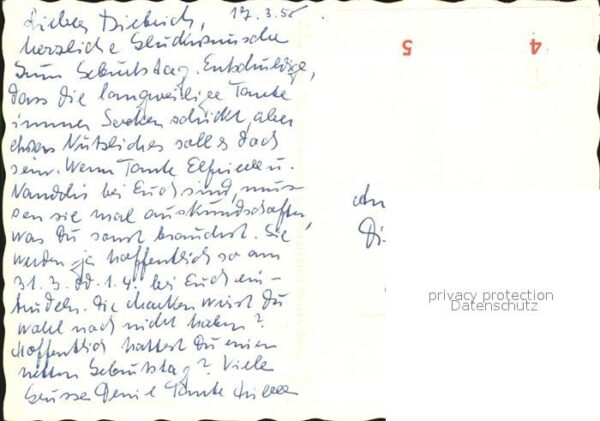 Lieber Dietrich, 17.3.56
herzliche Glückwünsche
zum Geburtstag. Entschuldige,
dass die langweilige Tante
immer Socken schickt, aber
etwas Nützliches soll es doch
sein. Wenn Tante Elfriede u.
bei Euch sind, müs-
sen sie mal auskundschaften,
was Du sonst brauchst. Sie
werden ja hoffentlich so am
31.3. od. 1.4. bei Euch ein-
trudeln. Die Marken wirst Du
wohl noch nicht haben?
Hoffentlich hattest Du einen
netten Geburtstag? Viele
Grüsse Deine Tante
5 4
An
Di
privacy protection
Datenschutz